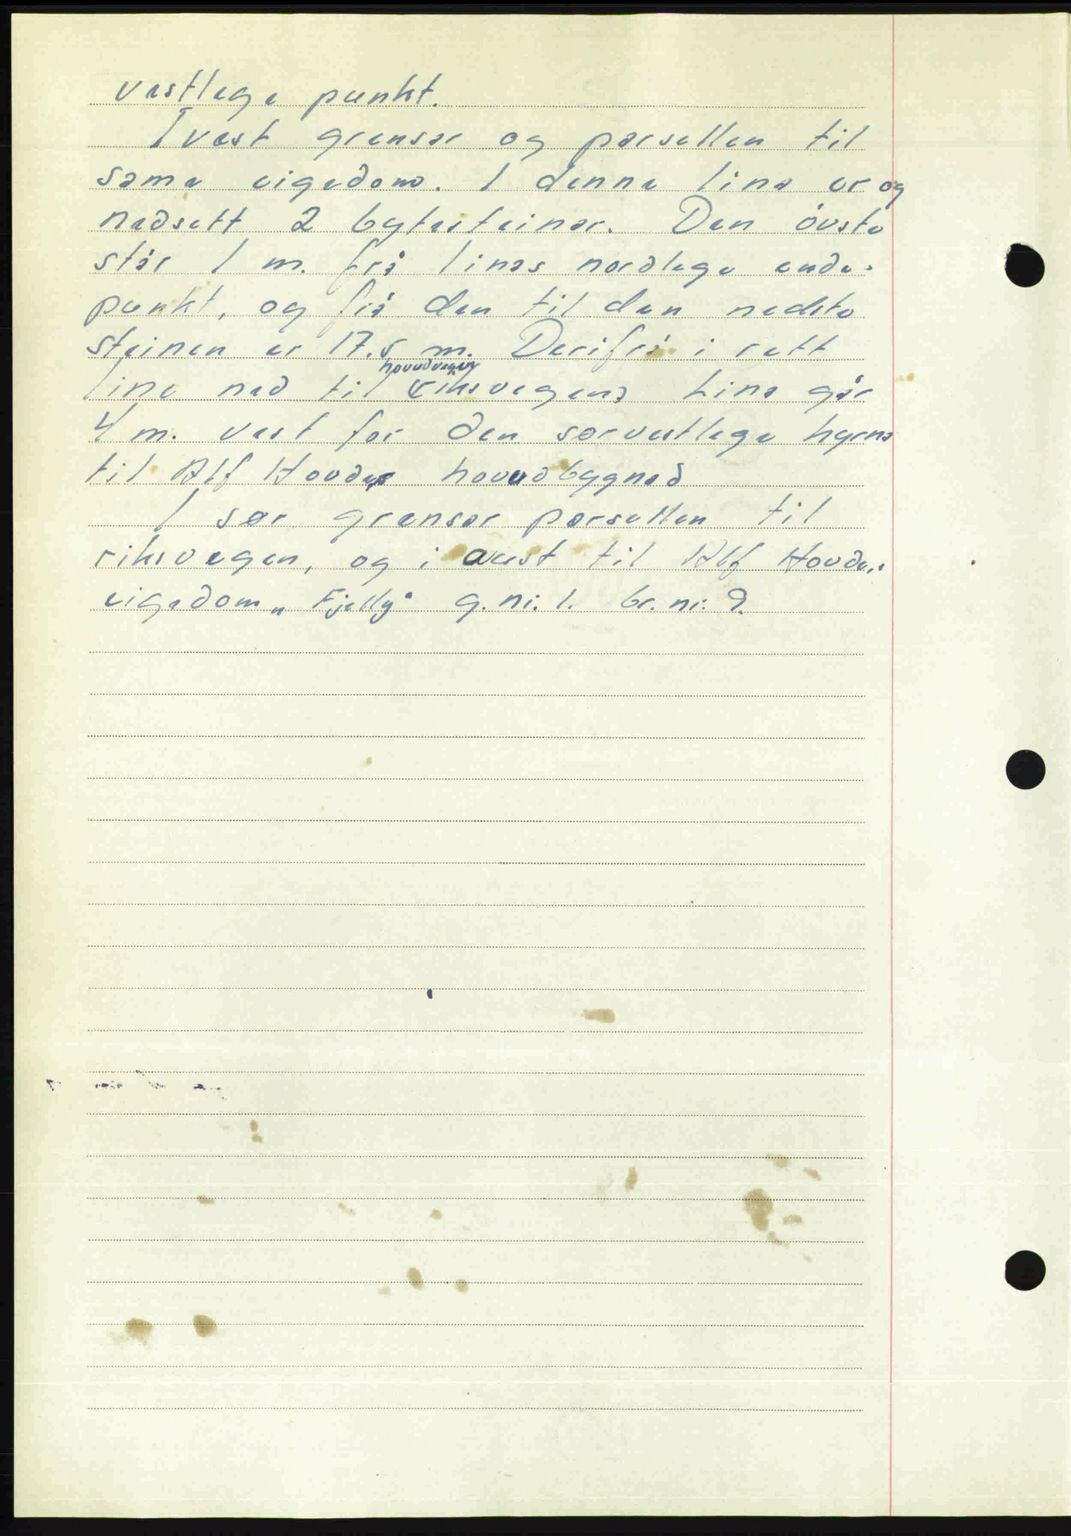 vestlege punkt.
I vest grensar og parsellen til
same eigedom. I denne lina er og
nedsett 2 bytesteinar. Den övste
står 1 m. frå linas nordlege ende-
punkt, og frå den til den nedste
steinen er 17.5 m. Derifrå i rett
hovudvegen
line ned til riksvegen. Lina går
4 m. vest for den sørvestlege hyrna
til Alf Hovdes hovudbygnad
I sør grensar parsellen til
riksvegen, og i aust til Alf Hovdes
eigedom „Fjelly" g.nr. 1. br. nr. 9.